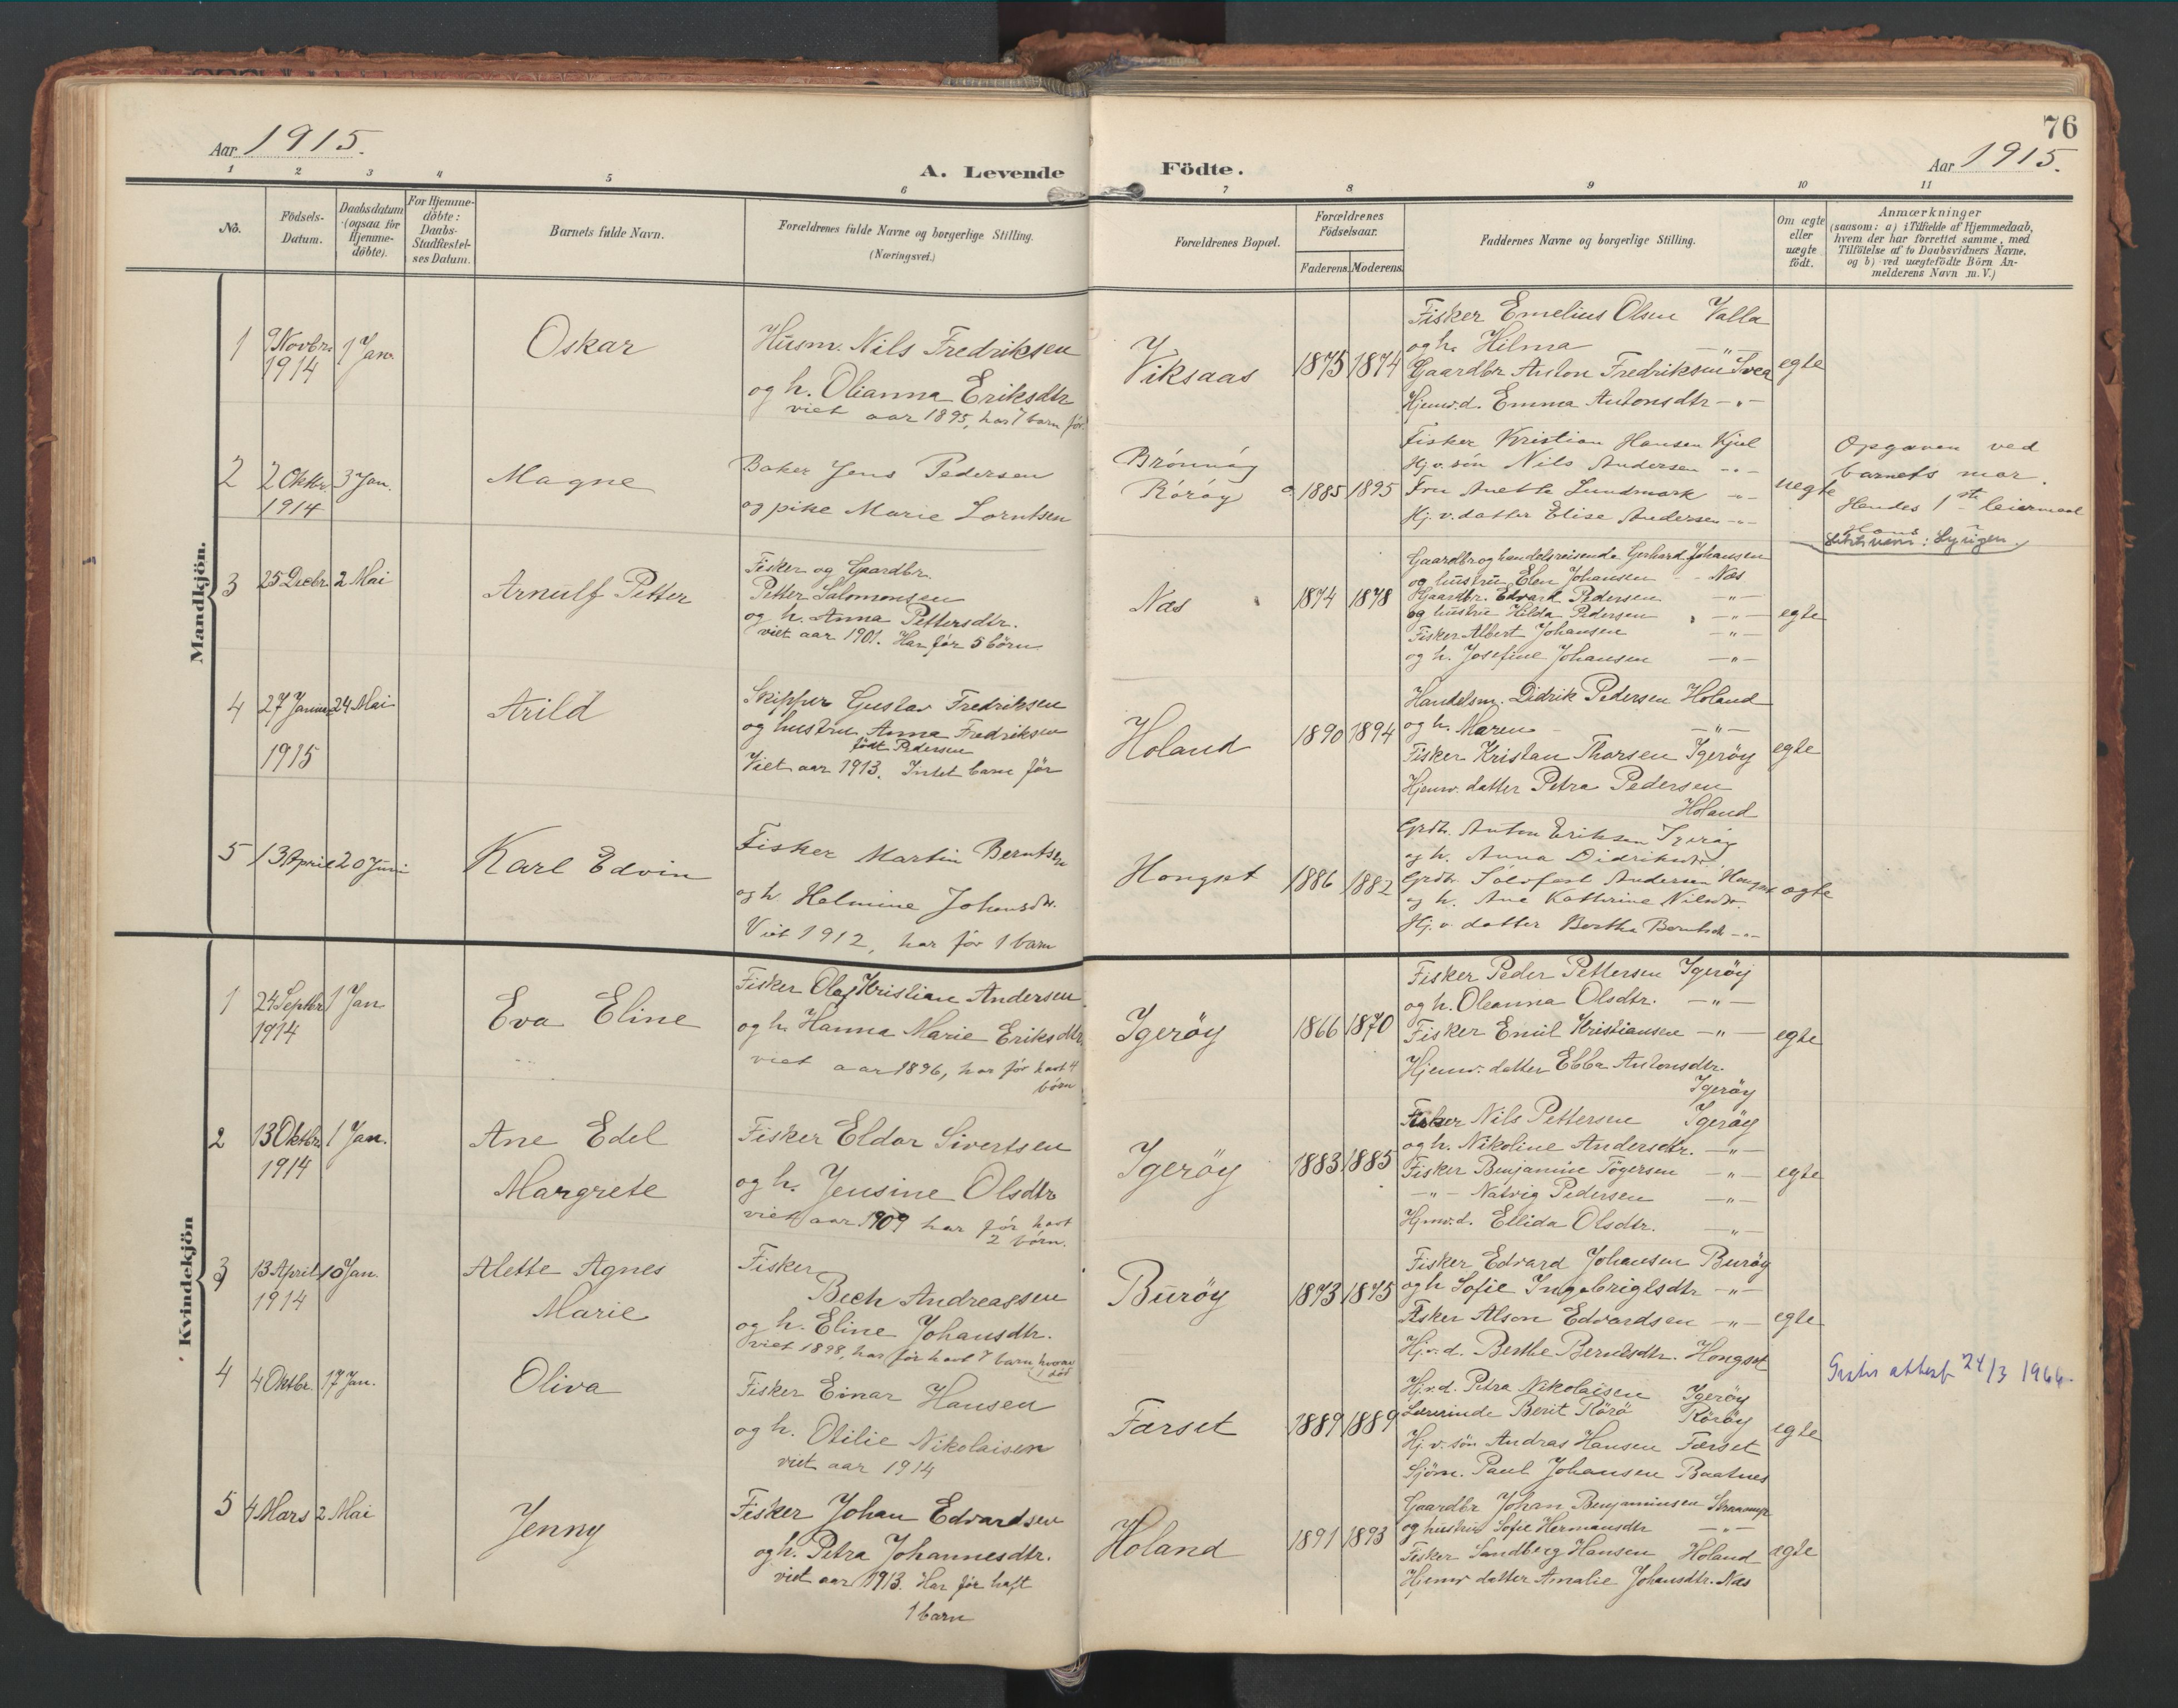 76
Aar 1915.
A. Levende Födte.
Aar 1915.
1 2 3 4 5 6 7 8 9 10 11
No.
Födsels-Datum.
Daabsdatum (ogsaa for Hjemme-döbte).
For Hjemme-döbte: Daabs-Stadfæstel-ses Datum.
Barnets fulde Navn.
Forældrenes fulde Navne og borgerlige Stilling.
(Næringsvei.)
Forældrenes Bopæl.
Forældrenes Födselsaar.
Faderens. Moderens.
Faddernes Navne og borgerlige Stilling.
Om ægte eller uægte födt.
Anmærkninger
(saasom: a) i Tilfælde af Hjemmedaab,
hvem der har forrettet samme, med
Tilföielse af to Daabsvidners Navne.
og b) ved uægtefödte Börn An-
melderens Navn m. V.)
Mandkjön.
1
9 Novbr. 1914
1 Jan.
Oskar
Husm. Nils Fredriksen
og h. Olianna Eriksdtr
viet aar 1895, har 7 barn før.
Viksaas
1875 1874
Fisker Emelius Olsen Valla
og h. Hilma —"—
Gaardbr Anton Fredriksen Svea
Hjemv.d. Emma Antonsdtr -"-
egte
2
2 Oktbr. 1914
3 Jan.
Magne
Baker Jens Pedersen
og pike Marie Lorntsen
Brönnöy
Röröy
1885 1895
Fisker Kristian Hansen Kjul
Hj.v. sön Nils Andersen -"-
Fru Anette Lundmark -"-
Hj. v. datter Elise Andersen -"-
uegte
Opgaven ved
barnets mor.
Hendes 1ste leiermaal
Hans
3
25 Decbr.
2 Mai
Arnulf Petter
Fisker og Gaardbr.
Petter Salomonsen
og h. Anna Pettersdtr.
viet aar 1901. Har før 5 börn
Næs
1874 1878
Gaardbr og handelsreisende Gerhard Johansen
og hustru Elen Johansen - Næs
Gaardbr. Edvard Pedersen —"—
og hustru Hilda Pedersen —"—
Fisker Albert Johansen —"—
og h. Josefine Johansen —"—
egte
4
27 Januar 1915
24 Mai
Arild
Skipper Gustav Fredriksen
og hustru Anna Fredriksen
født Pedersen
Viet aar 1913. Intet barn før
Holand
1890 1894
Handelsm. Didrik Pedersen Holand
og h. Maren —"—
Fisker Kristan Thorsen Igeröy
Hjemv. datter Petra Pedersen
Holand
egte
5
13 April
20 Juni
Karl Edvin
Fisker Martin Berntsen
og h Halmine Johansdtr.
Viet 1912, har før 1 barn
Hongset
1886 1882
Grdbr. Anton Eriksen Igeröy
og h. Anna Didriksdtr
Grdbr. Solvfast Andersen Hongset
og h. Ane Kathrine Nilsdtr.
Hj. v. datter Berthe Berntsdtr -"-
egte
Kvindekjön
1
24 Septbr 1914
1 Jan.
Eva Eline
Fisker Olaf Kristian Andersen
og h. Hanna Marie Eriksdtr.
viet aar 1896, har før havt 4
börn
Igeröy
1866 1870
Fisker Peder Pettersen Igeröy
og h. Oleanna Olsdtr. —"—
Fisker Emil Kristiansen —"—
Hjemv. datter Ebba Antonsdtr.
Igeröy
egte
2
13 Oktbr. 1914
1 Jan.
Ane Edel
Margrete
Fisker Eldar Sivertsen
og h. Jensine Olsdtr
viet aar 1909 har før havt
2 börn.
Igeröy
1883 1885
Fisker Nils Pettersen Igeröy
og h. Nikoline Andersdtr. —"—
Fisker Benjamin Tögersen —"—
—"— Natvig Pedersen —"—
Hjmv.d. Ellida Olsdtr. —"—
egte
3
13 April 1914
10 Jan.
Alette Agnes
Marie
Fisker
Bech Andreassen
og h. Eline Johansdtr.
viet 1898, har før havt 7 barn, hvorav
1 död
Buröy
1873 1875
Fisker Edvard Johansen Buröy
og h Sofie Ingebrigtsdtr -"-
Fisker Alson Edvardsen —"—
Hj.v.d. Berthe Berntsdtr. Hongset
egte
4
4 Oktbr.
17 Jan.
Oliva
Fisker Einar Hansen
og h. Otilie Nikolaisen
viet aar 1914
Færset
1889 1889
Hj.v.d. Petra Nikolaisen Igeröy
Lærerinde Berit Rörö Röröy
Hj. v. sön Andras Hansen Færset
Sjöm. Paul Johansen Baatnes
egte
attest 24/3 1966
5
4 Mars
2 Mai
Jenny
Fisker Johan Edvardsen
og h. Petra Johannesdtr.
viet aar 1913. Har før haft
1 barn
Holand
1891 1893
Gaardbr Johan Benjaminsen
og hustru Sofie Hermansdtr —"—
Fisker Sandberg Hansen Holand
Hjemv datter Amalie Johansdtr. Næs
egte